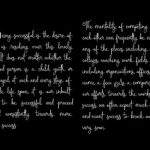 Being successful is the desire of
every being over this lovely
It does not matter whether the
person is a child, youth or
aged at each and every stage of
life span, it is an inbuilt
to be successful and proceed
constantly towards more
success.
The mentality of competing
each other can frequently be
any of the places including
college, coaching, work, fields,
including organizations, offices,
name a few gulp a component
an efforts towards the
success, we often expect much
and want success to knock
very soon.